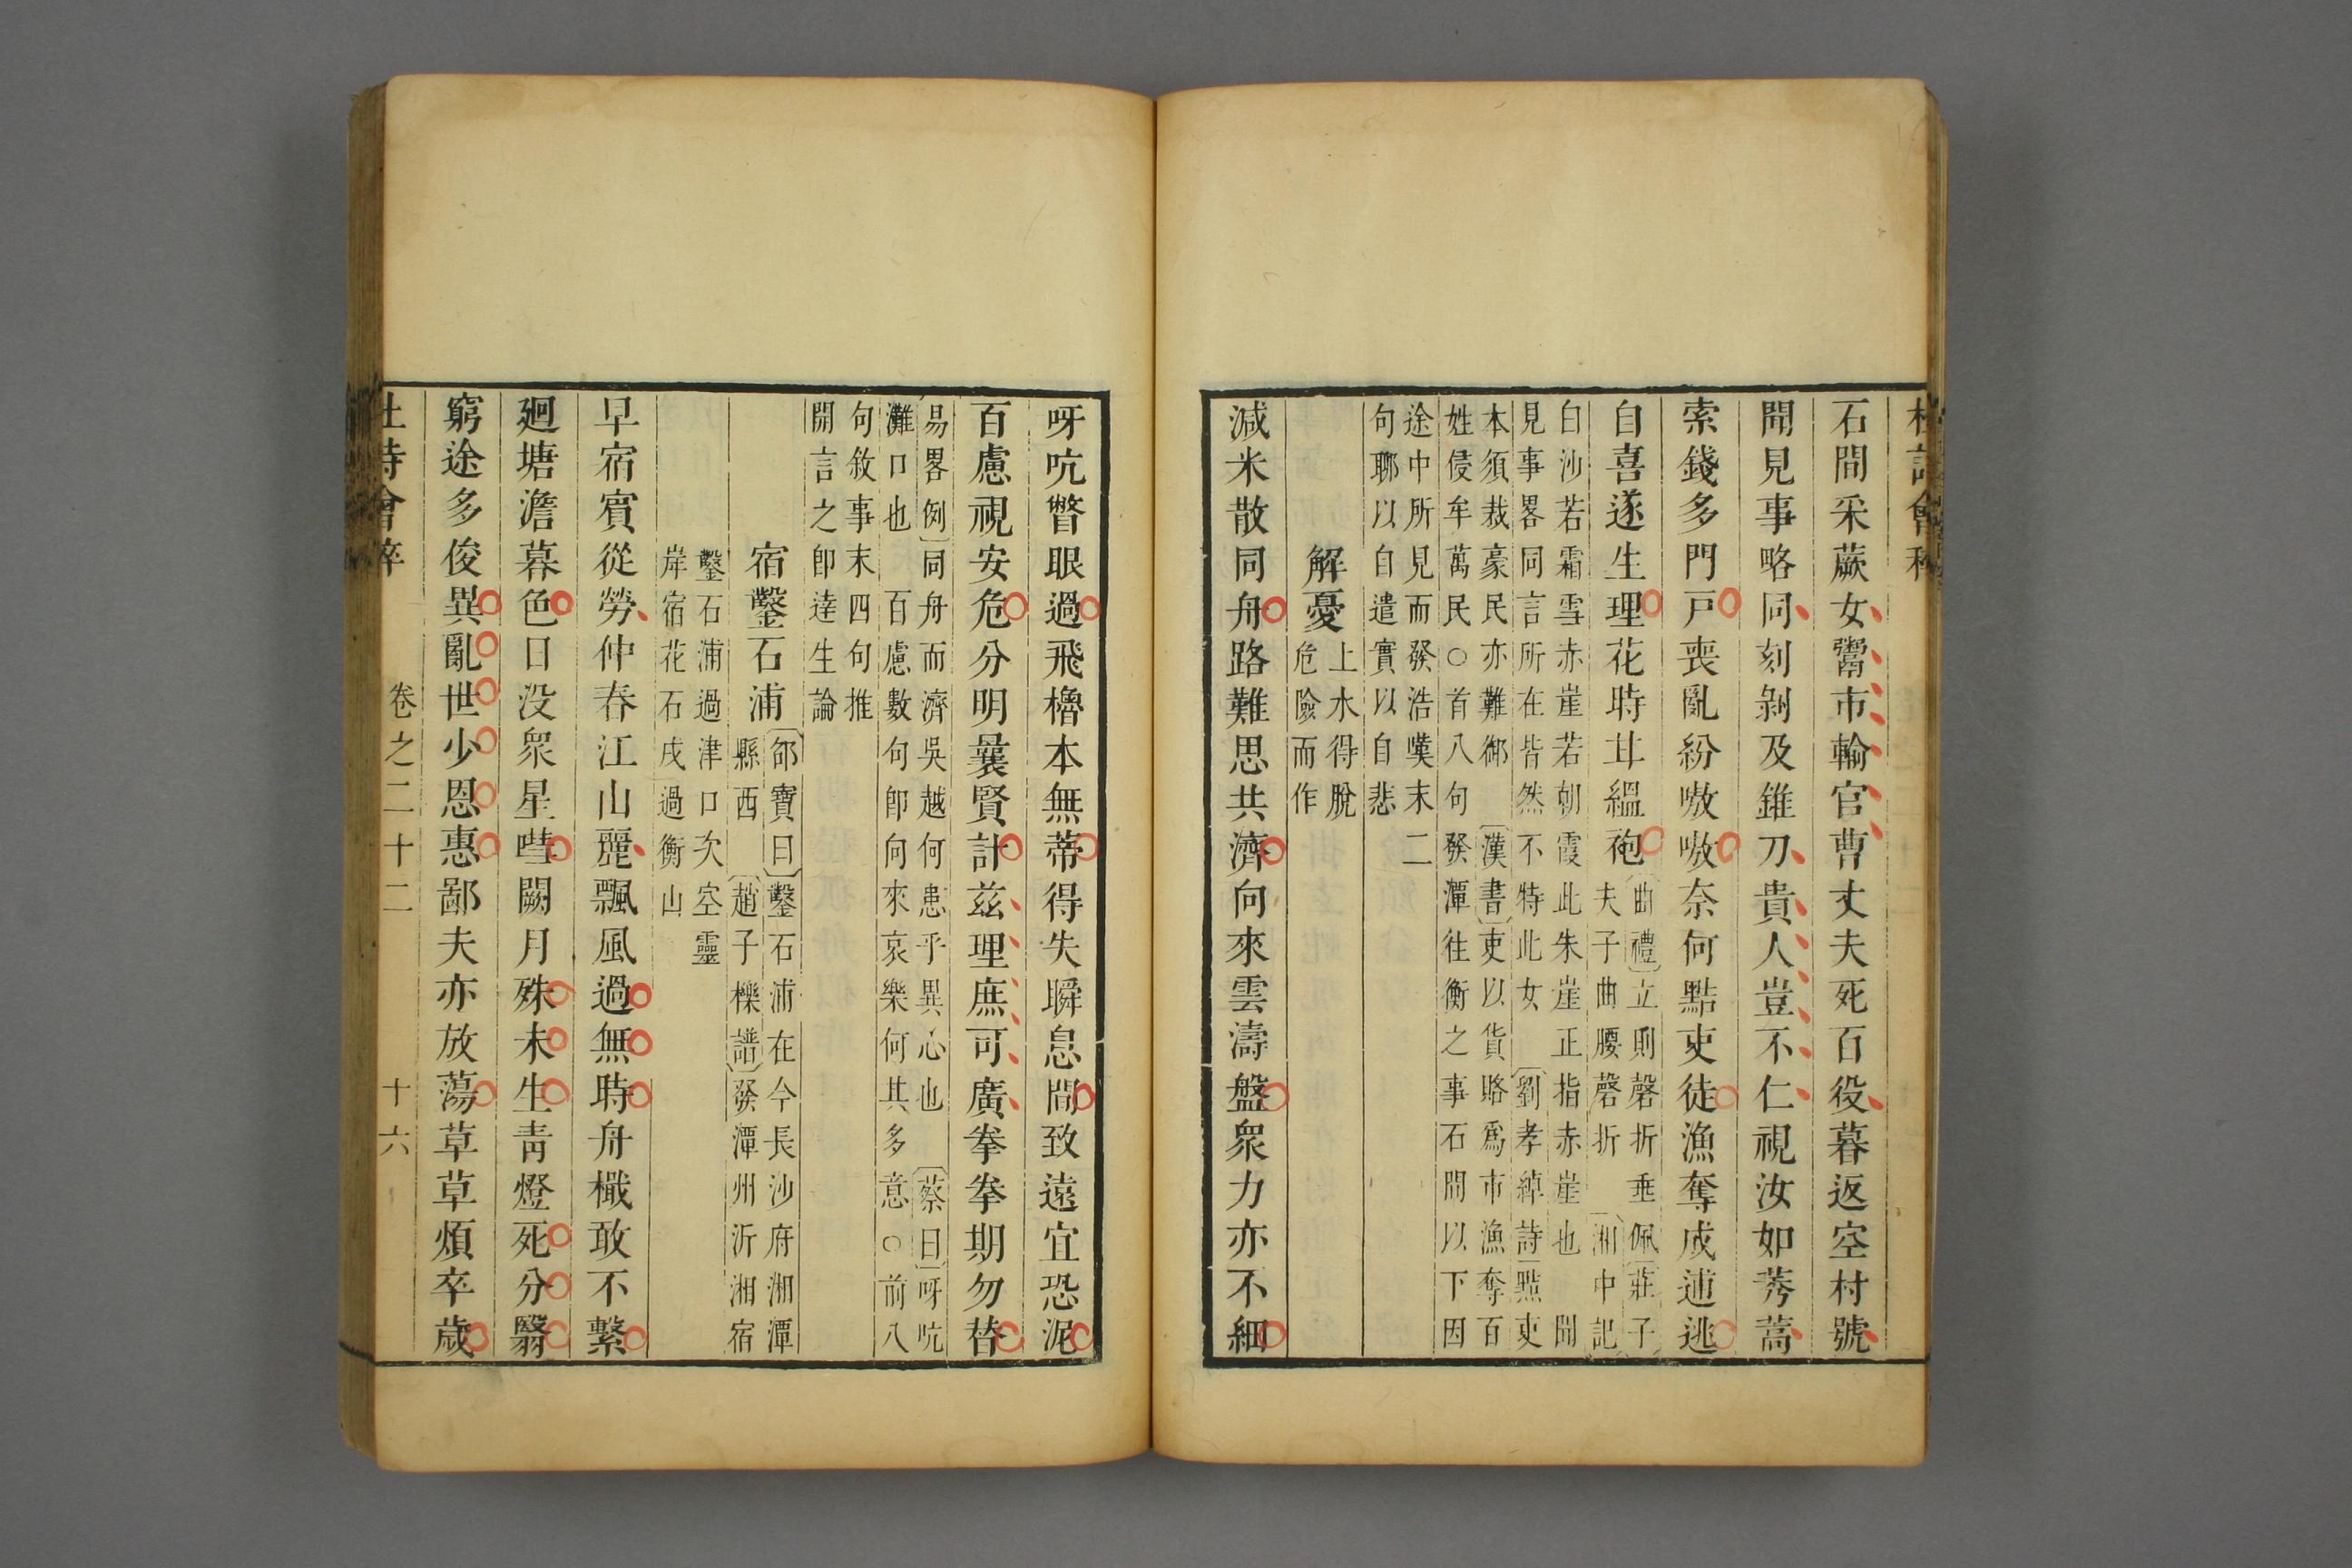 杜詩會稡
石間采蕨女鬻市輸官曹丈夫死百役暮返空村號
聞見事略同刻剝及錐刀貴人豈不仁視汝如莠蒿
索錢多門戸喪亂紛嗷嗷奈何黠吏徒漁奪成逋逃
自喜遂生理花時甘縕袍
曲禮立則磬折垂佩莊子
夫子曲腰磬折 湘中記
白沙若霜雪赤崖若朝霞此朱崖正指赤崖也 聞
見事畧同言所在皆然不特此女 劉孝綽詩黠吏
本須裁豪民亦難御 漢書吏以貨賂爲市漁奪百
姓侵牟萬民○首八句發潭往衡之事石間以下因
途中所見而發浩嘆末二
句聊以自遣實以自悲
解憂
上水得脫
危險而作
減米散同舟路難思共濟向來雲濤盤衆力亦不細
呀吭瞥眼過飛櫓本無蒂得失瞬息間致遠宜恐泥
百慮視安危分明曩賢計茲理庶可廣拳拳期勿替
易畧例同舟而濟吳越何患乎異心也 蔡曰呀吭
灘口也 百慮數句卽向來哀樂何其多意○前八
句敘事末四句推
開言之卽達生論
宿鑿石浦
邵寶曰鑿石浦在今長沙府湘潭
縣西 趙子櫟譜發潭州泝湘宿
鑿石浦過津口次空靈
岸宿花石戍過衡山
早宿賓從勞仲春江山麗飄風過無時舟檝敢不繫
廻塘澹暮色日没衆星嘒闕月殊未生靑燈死分翳
窮途多俊異亂世少恩惠鄙夫亦放蕩草草頻卒歲
杜詩會稡 卷之二十二 十六